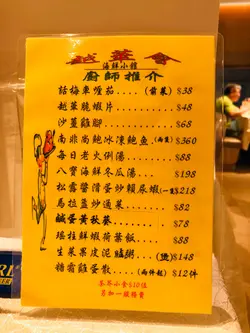 越華會
海鮮小館
廚師推介
話梅車喱茄....(前菜) $38
越華脆蝦片......$48
沙薑雞腳........$68
南非尚鮑冰凍鮑魚.(兩隻)$360
每日老火例湯....$88
八寶海鮮冬瓜湯...$198
松露醬滑蛋炒賴尿蝦(一隻)$218
馬拉盞炒通菜....$82
鹹蛋黃秋葵......$78
瑤柱鮮蝦荷葉飯...$88
生菜果皮泥鯭粥..(煲)$148
糖霜雞蛋散..(兩件起) $12件
茶芥小食$10位
另加一服務費